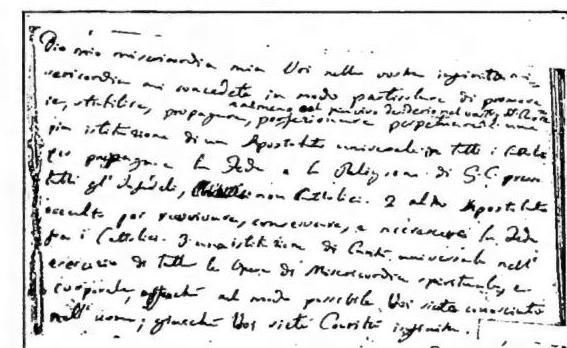 Dio mio misericordia mia Voi nella vostra infinita mi-
sericordia mi concedete in modo particolare di promove
re, stabilire, propagare, perfezionare perpetuare
almeno col più vivo desiderio nel vostro SS. Cuore
pia istituzione di un Apostolato universale in tutti i Cattolici
per propagare la Fede e la Religione di G. C. presso
tutti gl' Infedeli, e non Cattolici. 2 altro Apostolato
occulto per ravvivare, conservare, e accrescere la Fede
fra i Cattolici. 3 una istituzione di Carità universale nell'
esercizio di tutte le Opere di Misericordia spirituale, e
corporale, affinché nel modo possibile Voi siate conosciuto
nell' uomo; giacché Voi siete Carità infinita.